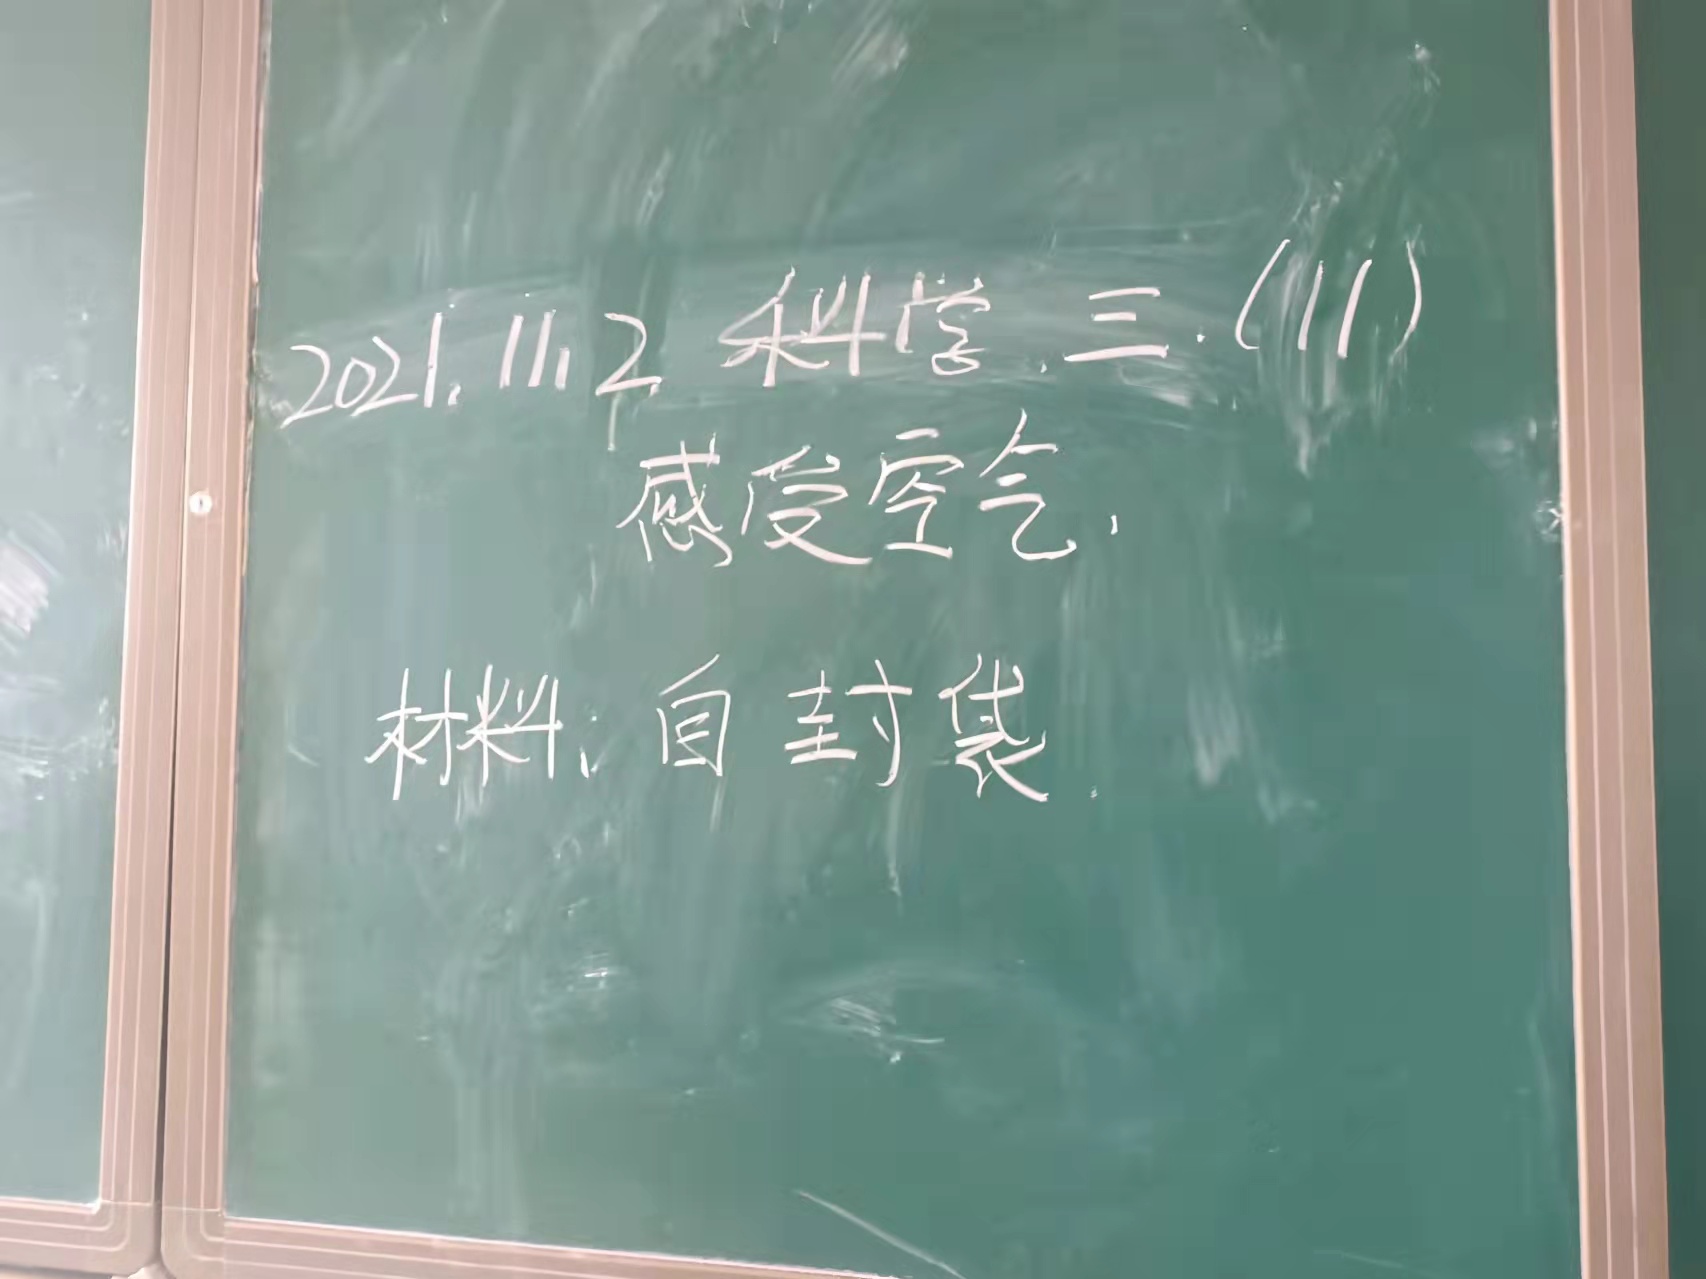 2021.11.2 科学.三.(11)
感受空气.
材料:自封袋.